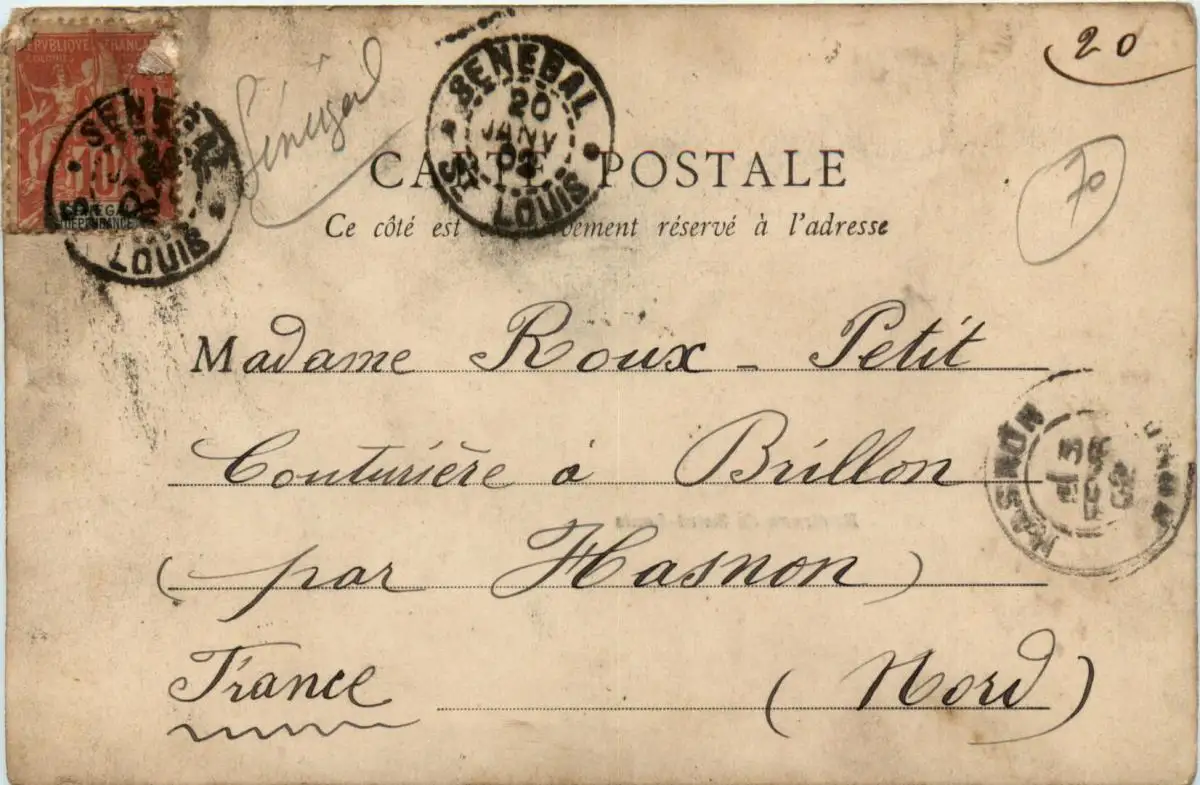 REPUBLIQUE FRANÇAISE
COLONIES
10
SÉNÉGAL
DÉPENDANCES
SENEGAL
LOUIS
Sénégal
SENEGAL
20
JANV
02
ST LOUIS
20
70
CARTE POSTALE
Ce côté est exclusivement réservé à l'adresse
Madame Roux - Petit
Couturière à Brillon
(par Hasnon)
France (Nord)
HASNON
3
FEVR
02
NORD